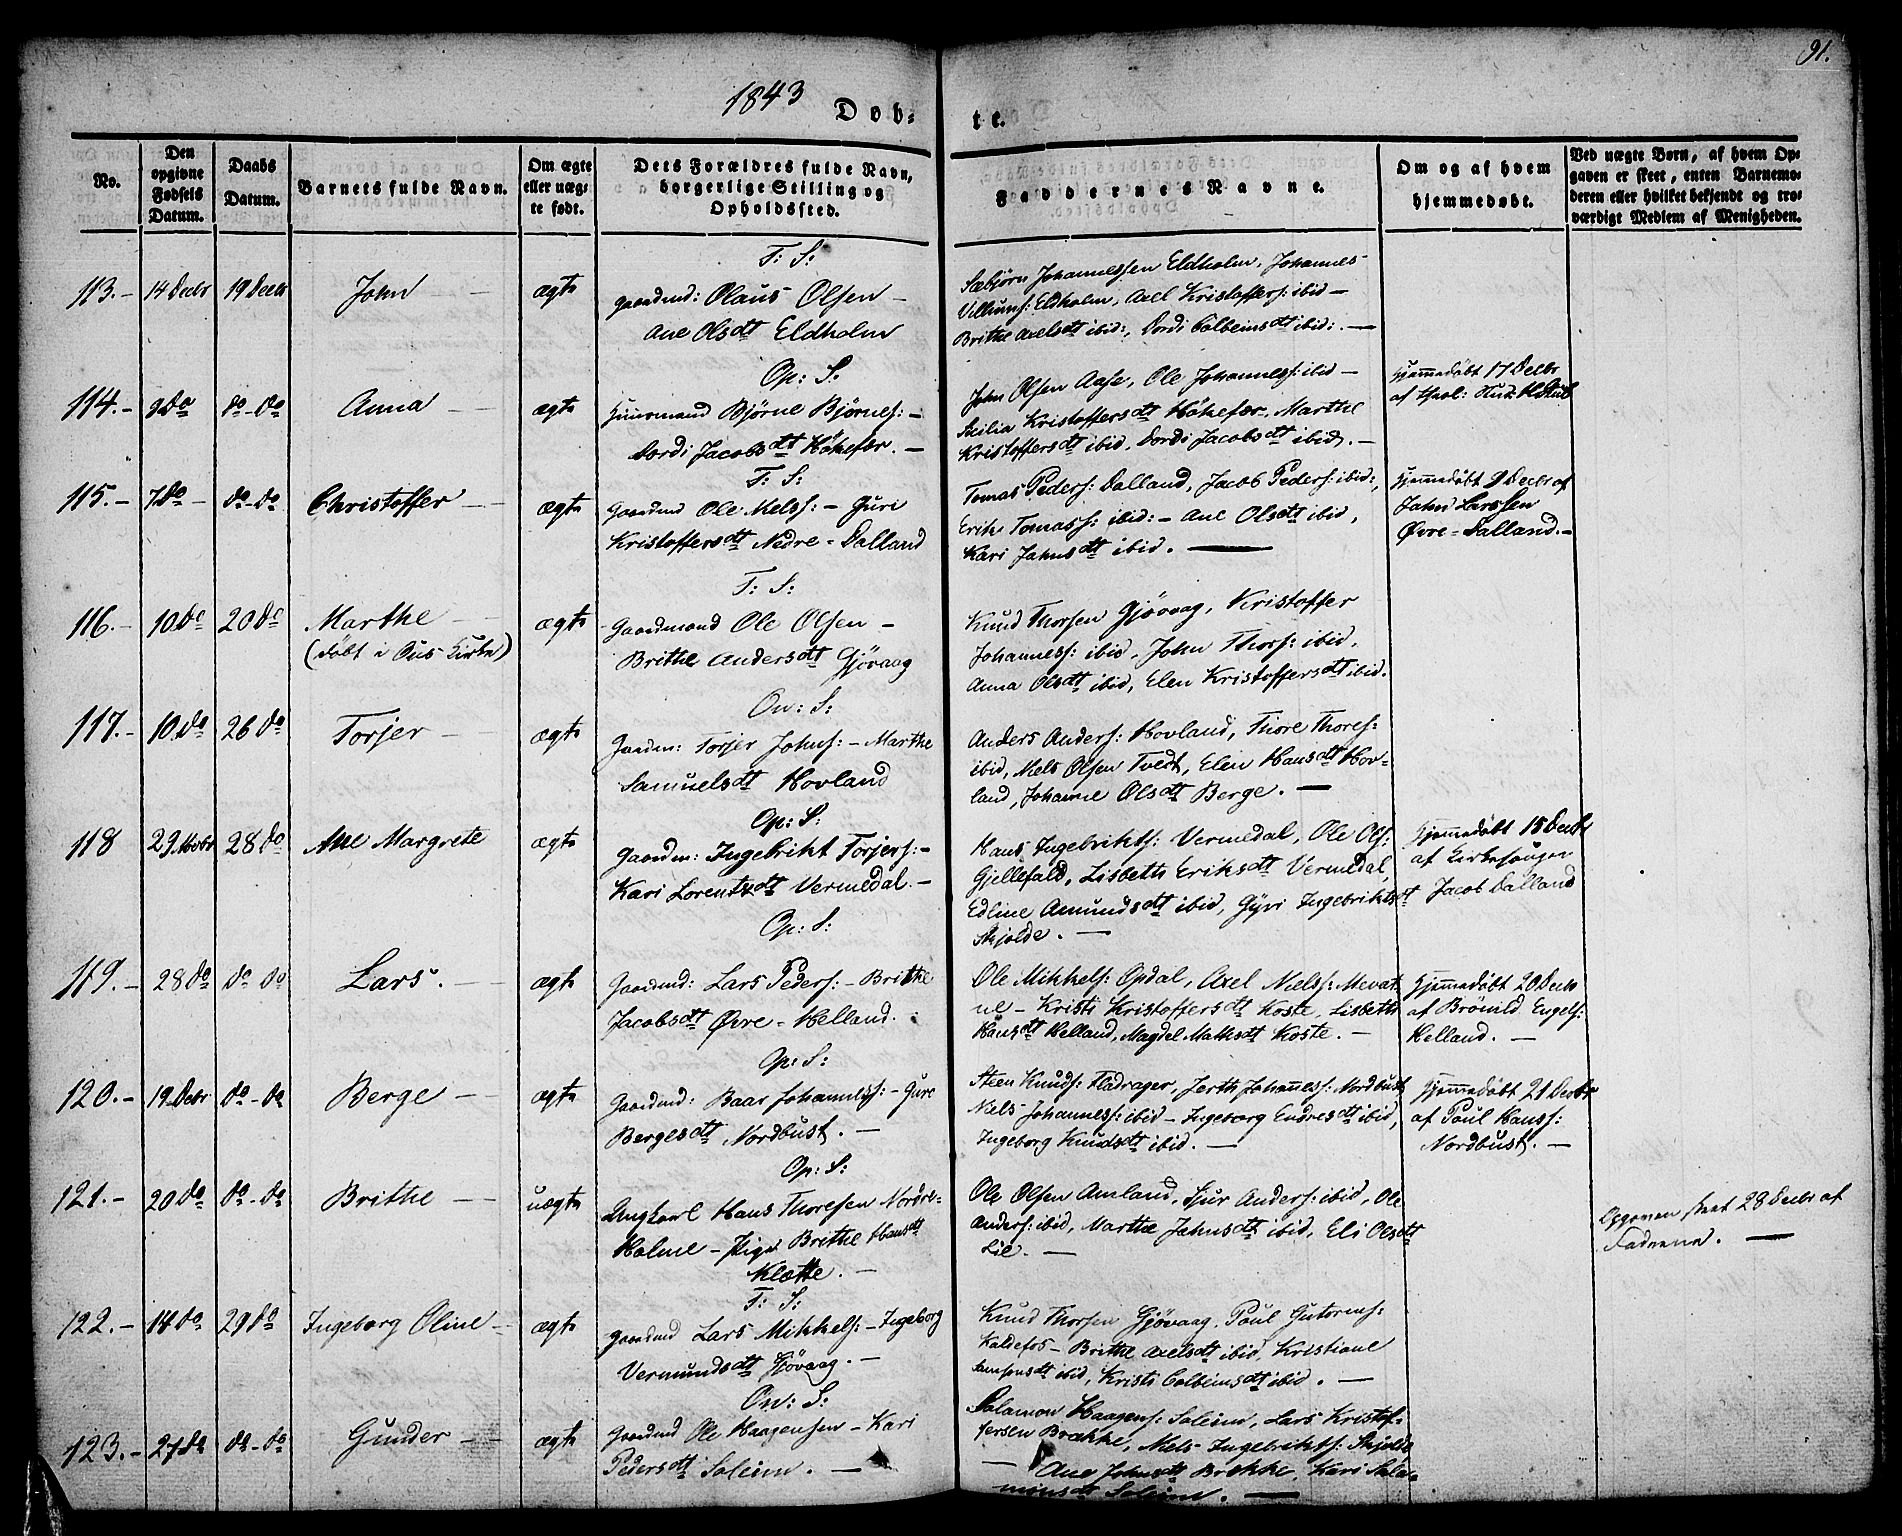 91.
1843
Døb-
te.
No.
Den opgivne Fødsels Datum.
Daabs Datum.
Barnets fulde Navn.
Om ægte eller uægte født.
Dets Forældres fulde Navn, borgerlige Stilling og Opholdssted.
Faddernes Navne.
Om og af hvem hjemmedøbt.
Ved uægte Børn, af hvem Opgaven er skeet, enten Barnemoderen eller hvilket bekjendt og troværdigt Medlem af Menigheden.
T: S:
113.- 14 Decbr 19 Decbr John ægte
Gaardmd: Olaus Olsen -
Ane Olsdt Eldholm
Sæbjørn Johannessen Eldholm, Johannes
Villums: Eldholm, Axel Kristoffers: ibid -
Brithe Axelsdt ibid:, Dordi Colbeinsdt ibid: -
Op: S:
114.- 9 Do Do-Do Anna ægte
Huusmand Bjørne Bjørnes: -
Dordi Jacobsdt Høkefær. -
John Olsen Aase, Ole Johanness: ibid -
Kristoffersdt Høkefær, Marthe
Kristoffersdt ibid, Dordi Jacobsdt ibid. -
Hjemmedøbt 17 Decbr
T: S:
115.- 7. Do - Do-Do Christoffer ægte
Gaardmd Ole Niels: - Guri
Kristoffersdt Nedre-Dalland
Tomas Peders: Dalland, Jacob Peders: ibid:,
Erik Tomass: ibid: - Ane Olsdt ibid,
Kari Jahnsdt ibid. -
Hjemmedøbt 9 Decbr af
Jahn Larssen
Øvre-Dalland. -
T: S:
116.- 10. Do 20 Do Marthe
(døbt i Ous Kirke) ægte
Gaardmand Ole Olsen -
Brithe Andersdt Gjøvaag
Knud Thorsen Gjøvaag, Kristoffer
Johanness: ibid, John Thors: ibid,
Anna Olsdt ibid, Elen Kristoffersdt ibid.
On: S:
117.- 10. Do 26 Do Torjer ægte
Gaardm: Torjer Johns: - Marthe
Samuelsdt Hovland
Anders Anders: Hovland, Thore Thores:
ibid, Niels Olsen Tvedt, Elen Hansdt Hov-
land, Johanne Olsdt Berge. -
Op: S:
118 23. Novbr 28 Do Ane Margrete ægte
Gaardm: Ingebrikt Torjers: -
Kari Lorentzdt Vermedal. -
Hans Ingebrikts: Vermedal, Ole Ols:
Gjellefald, Lisbeth Eriksdt Vermedal,
Edline Amundsdt ibid, Gyri Ingebriktsdt
Skjolde. -
Hjemmedøbt 15 Decbr
af Kirkesanger
Jacob Dalland
Op: S:
119.- 28 Do Do Do Lars. ægte
Gaardmd: Lars Peders: - Brithe
Jacobsdt Øvre-Helland.
Ole Mikkels: Opdal, Axel Niels: Mevat-
ne - Kristi Kristoffersdt Koste, Lisbeth
Hansdt Helland, Magdel Mathsdt Koste. -
Hjemmedøbt 20 Decbr
af Brönild Engels:
Helland. -
Op: S:
120.- 19. Decbr Do-Do Berge ægte
Gaardmd: Baar Johanness: - Gure
Bergesdt Nordbust. -
Steen Knuds: Fladrager, Jerth Johanness: Nordbust,
Niels Johanness: ibid - Ingeborg Endresdt ibid,
Ingeborg Knudsdt ibid. -
Hjemmedøbt 21 Decbr
af Poul Hanss:
Nordbust. -
Op: S:
121.- 20 Do Do-Do Brithe uægte
Ungkarl Hans Thoresen Nordre-
Holme - Pige Brithe Hansdt
Klætte. -
Ole Olsen Amland, Sjur Anders: ibid, Ole
Anders: ibid, Marthe Jahnsdt ibid, Eli Olsdt
Lie. -
Opgaven skeet 28 Decbr af
Faderne. -
T: S:
122.- 18 Do 29 Do Ingeborg Oline ægte
Gaardmd Lars Mikkels: - Ingeborg
Vermundsdt Gjøvaag. -
Knud Thorsen Gjøvaag, Poul Gutorms:
Kaldefos - Brithe Axelsdt ibid, Kristiane
Samsonsdt ibid, Kristi Colbeinsdt ibid. -
On: S:
123.- 27 Do Do-Do Gunder ægte
Gaardmd Ole Haagensen - Kari
Pedersdt Saleim. -
Salamon Haagens: Saleim, Lars Kristof-
fersen Brække, Niels Ingebrikts: Skjolde
- Ane Johnsdt Brekke, Kari Sala-
monsdt Saleim. -